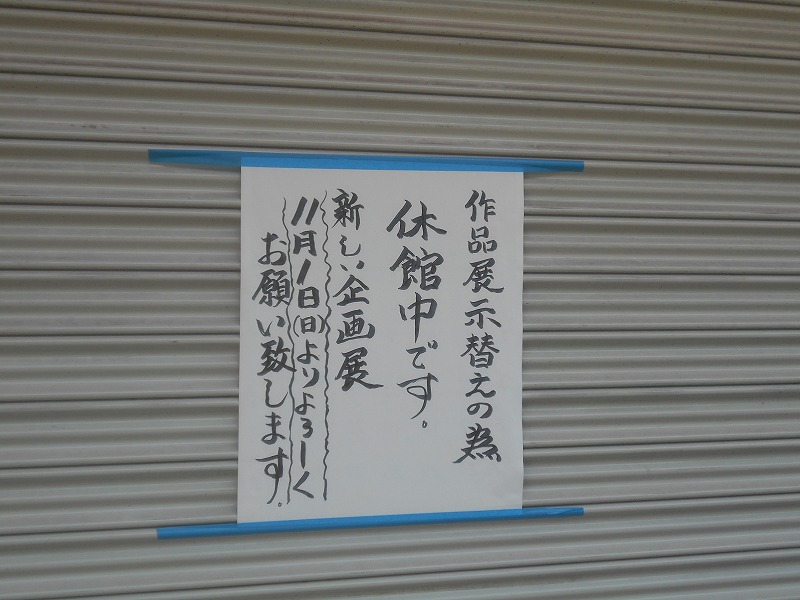 作品展示替えの為
休館中です。
新しい企画展
11月1日(日)よりよろしく
お願い致します。